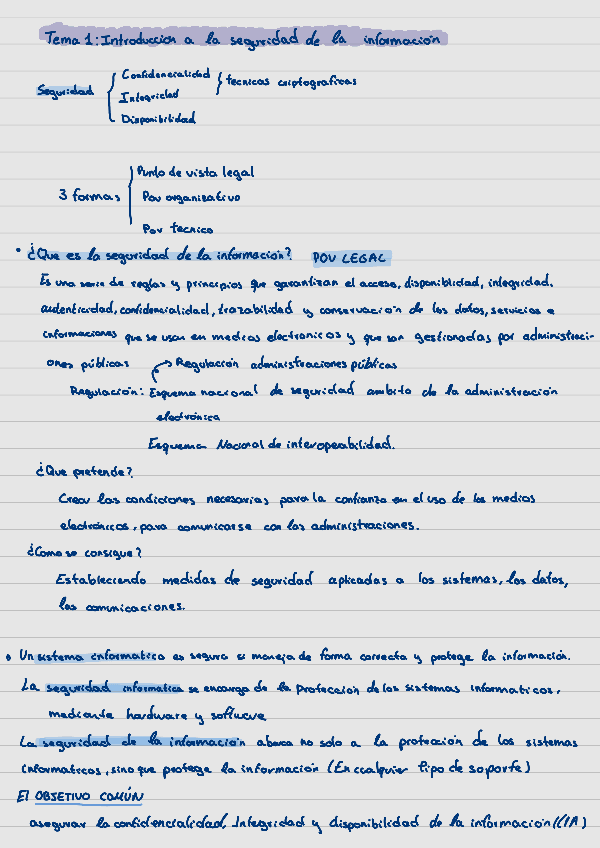 Tema 1: Introduccion a la seguridad de la información
Seguridad { Confidencialidad } tecnicas criptograficas
Integridad
Disponibilidad
3 formas { Punto de vista legal
Pov organizativo
Pov tecnico
• ¿Que es la seguridad de la informacion? POV LEGAL
Es una serie de reglas y principios que garantizan el acceso, disponiblidad, integridad,
autenticidad, confidencialidad, trazabilidad y conservacion de los datos, servicios e
informaciones que se usan en medios electronicos y que son gestionadas por administraci-
ones públicas → Regulación administraciones públicas
Regulación: Esquema nacional de seguridad ambito de la administración
electrónica
Esquema Nacional de interoperabilidad.
¿Que pretende?
Crear las condiciones necesarias para la confianza en el uso de los medios
electrónicos, para comunicarse con las administraciones.
¿Como se consigue?
Estableciendo medidas de seguridad aplicadas a los sistemas, los datos,
las comunicaciones.
• Un sistema informatico es seguro si maneja de forma correcta y protege la información.
La seguridad informatica se encarga de la protección de los sistemas informaticos,
mediante hardware y software
La seguridad de la informacion abarca no solo a la protección de los sistemas
informaticos, sino que protege la información (En cualquier tipo de soporte)
El OBJETIVO COMÚN
asegurar la confidencialidad, Integridad y disponibilidad de la información (CIA)